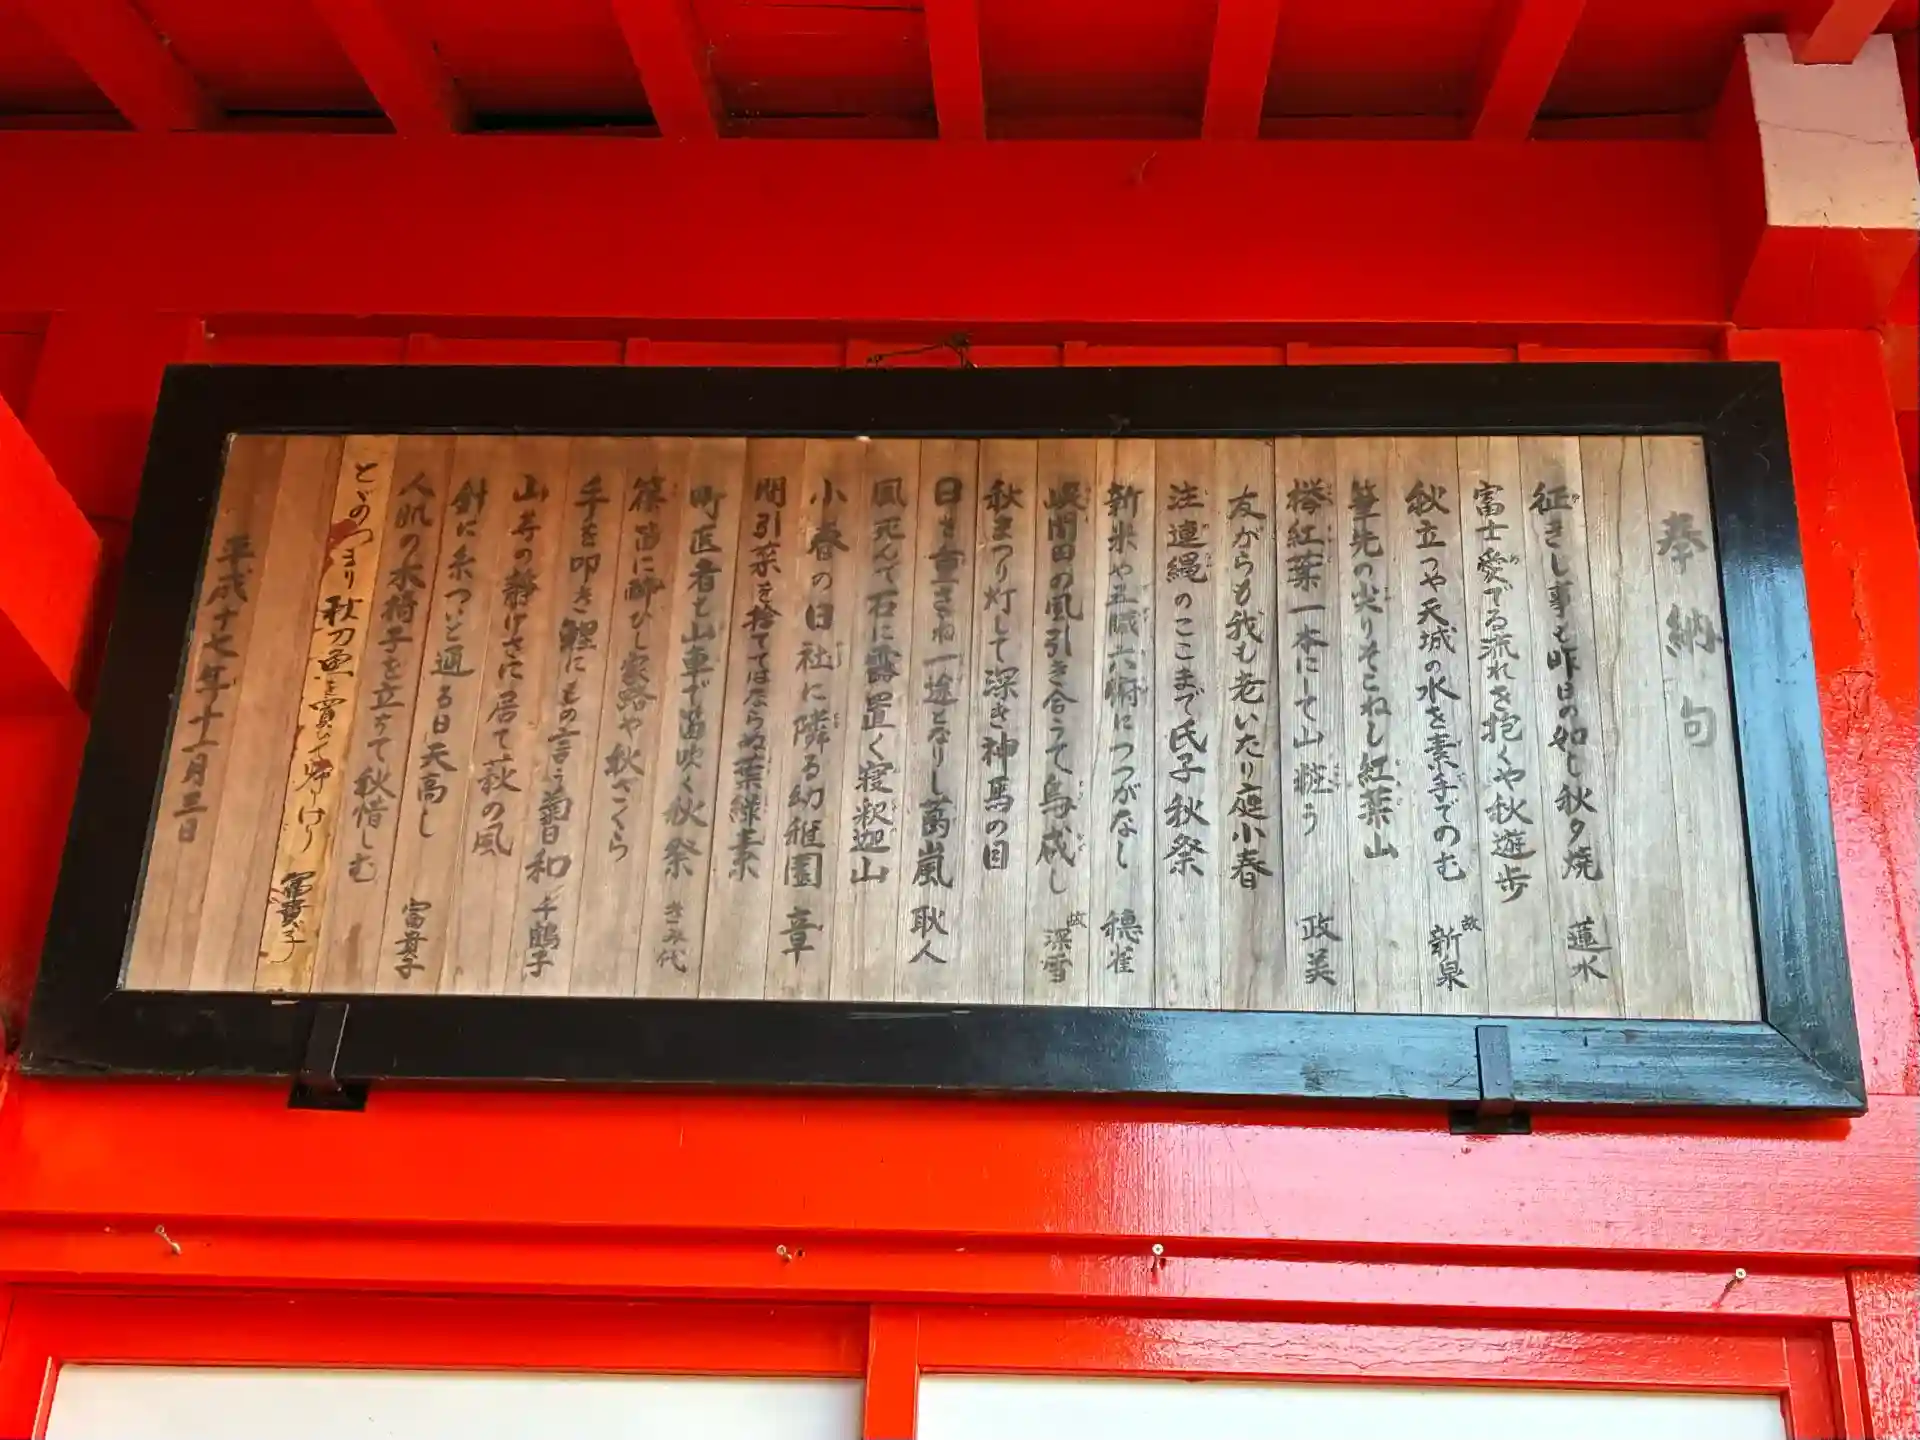 奉納句
征きし事も昨日の如し秋夕焼 蓮水
富士愛でる流れを抱くや秋遊歩
秋立つや天城の水を素手でのむ 故 新泉
筆先の尖りそこねし紅葉山
欅紅葉一本にて山粧う 政美
友がらも我も老いたり庭小春
注連縄のここまで氏子秋祭
新米や五臓六腑につつがなし 穂雀
峡間田の風引き合うて鳥威し 故 深雪
秋まつり灯して深き神馬の目
日を重さね一途となりし蔦嵐 耿人
風死んで石に露置く寝釈迦山
小春の日社に隣る幼稚園 章
間引菜を捨ててはならぬ葉緑素
町医者も山車で笛吹く秋祭 きみ代
篠笛に酔ひし家路や秋ざくら
手を叩き鯉にもの言う菊日和 千鶴子
山寺の静けさに居て萩の風
針に糸ついと通る日天高し 富貴子
人肌の木椅子を立ちて秋惜しむ
とゞのつまり秋刀魚を買いて帰けり 富貴子
平成十七年十一月三日